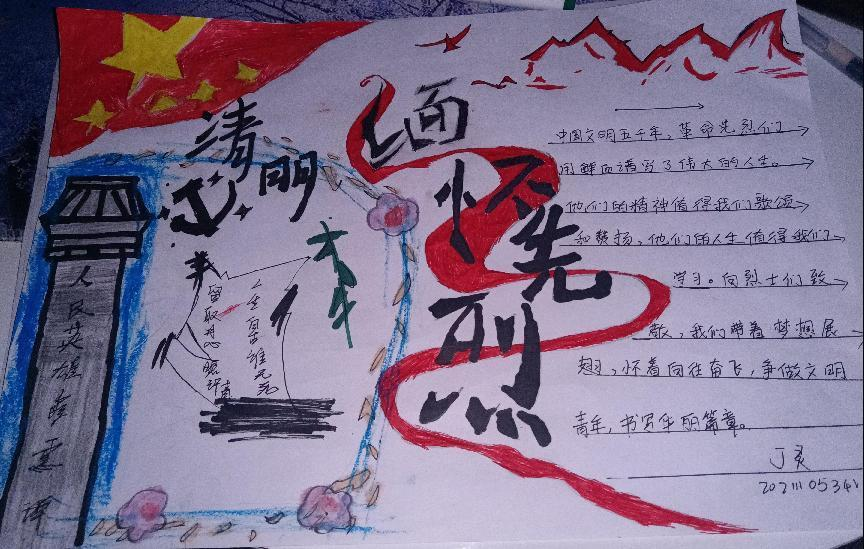 清明
缅怀先烈
人民英雄
人生自古谁无死
留取丹心照汗青
中国文明五千年，革命先烈们
用鲜血谱写了伟大的人生。
他们的精神值得我们歌颂
和赞扬，他们的人生值得我们
学习。向烈士们致
敬，我们带着梦想展
翅，怀着向往奋飞，争做文明
青年，书写华丽篇章。